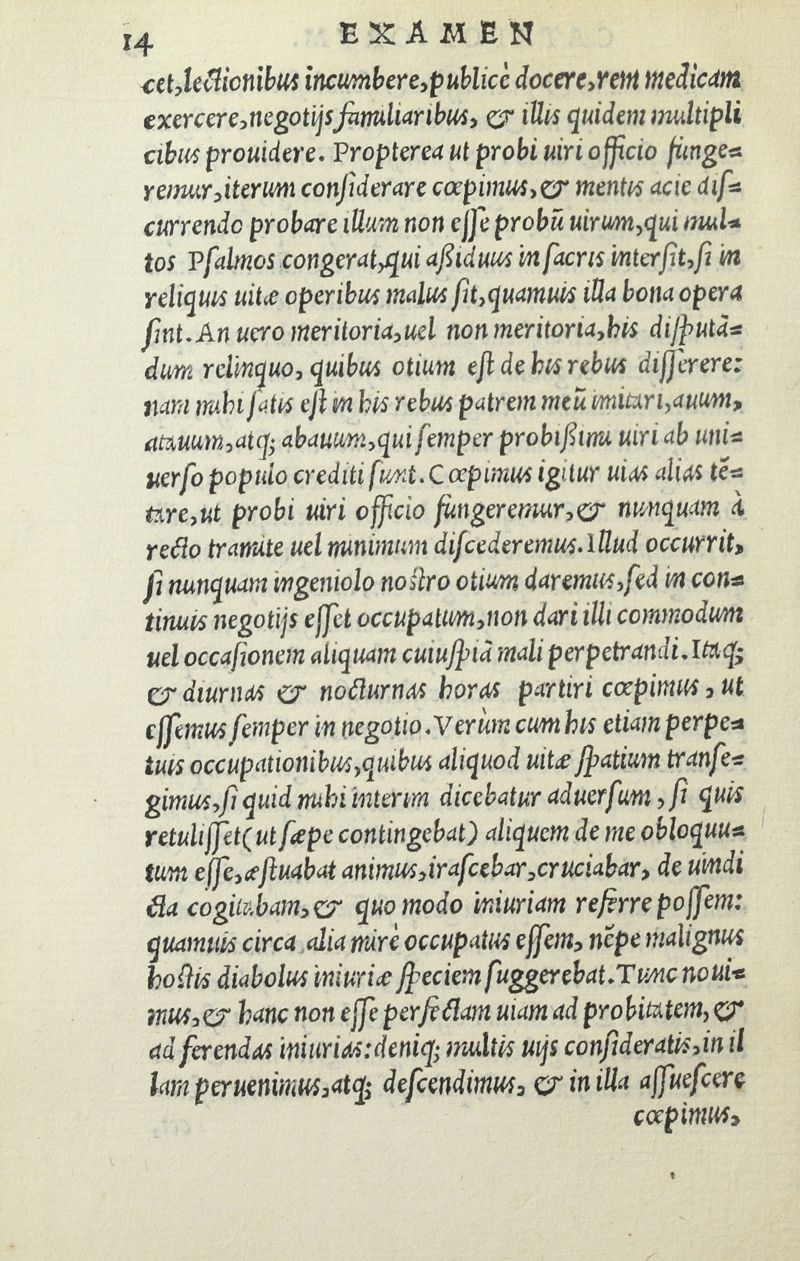 14 EXAMEN
cet,lectionibus incumbere,publicè docere,rem medicam
exercere,negotijs familiaribus, & illis quidem multipli
cibus prouidere. Propterea ut probi uiri officio funge=
remur,iterum considerare cœpimus,& mentis acie dis=
currendo probare illum non esse probũ uirum,qui mul=
tos Psalmos congerat,qui aßiduus in sacris intersit,si in
reliquis uitæ operibus malus sit,quamuis illa bona opera
sint. An uero meritoria,uel non meritoria,his disputã=
dum relinquo, quibus otium est de his rebus disserere:
nam mihi satis est in his rebus patrem meũ imitari,auum,
atauum,atq; abauum,qui semper probißimi uiri ab uni=
uerso populo crediti sunt. Cœpimus igitur uias alias tẽ=
tare,ut probi uiri officio fungeremur,& nunquam à
recto tramite uel minimum discederemus. Illud occurrit,
si nunquam ingeniolo nostro otium daremus,sed in con=
tinuis negotijs esset occupatum,non dari illi commodum
uel occasionem aliquam cuiuspiã mali perpetrandi. Itaq;
& diurnas & nocturnas horas partiri cœpimus, ut
essemus semper in negotio. Verùm cum his etiam perpe=
tuis occupationibus,quibus aliquod uitæ spatium transe=
gimus,si quid mihi interim dicebatur aduersum, si quis
retulisset(ut sæpe contingebat) aliquem de me obloquu=
tum esse,æstuabat animus,irascebar,cruciabar, de uindi
cta cogitabam,& quo modo iniuriam referre possem:
quamuis circa alia mirè occupatus essem, nẽpe malignus
hostis diabolus iniuriæ speciem suggerebat. Tunc noui=
mus,& hanc non esse perfectam uiam ad probitatem, &
ad ferendas iniurias: deniq; multis uijs consideratis,in il
lam peruenimus,atq; descendimus, & in illa assuescere
cœpimus,